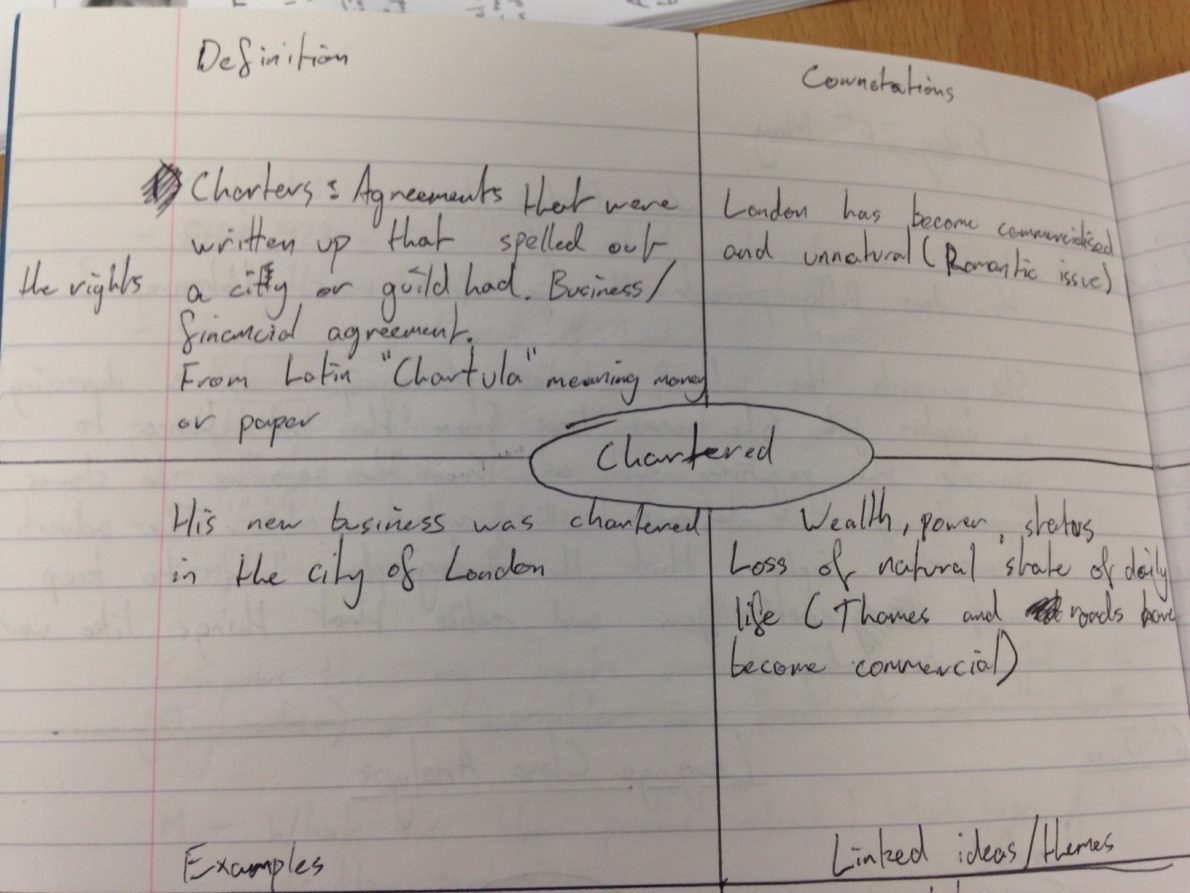 Definition
Charters = Agreements that were
written up that spelled out
the rights a city or guild had. Business/
financial agreement.
From Latin "Chartula" meaning money
or paper
Connotations
London has become commercialised
and unnatural (Romantic issue)
Chartered
His new business was chartered
in the city of London
Examples
Wealth, power, status
Loss of natural state of daily
life (Thames and roads have
become commercial)
Linked ideas/themes